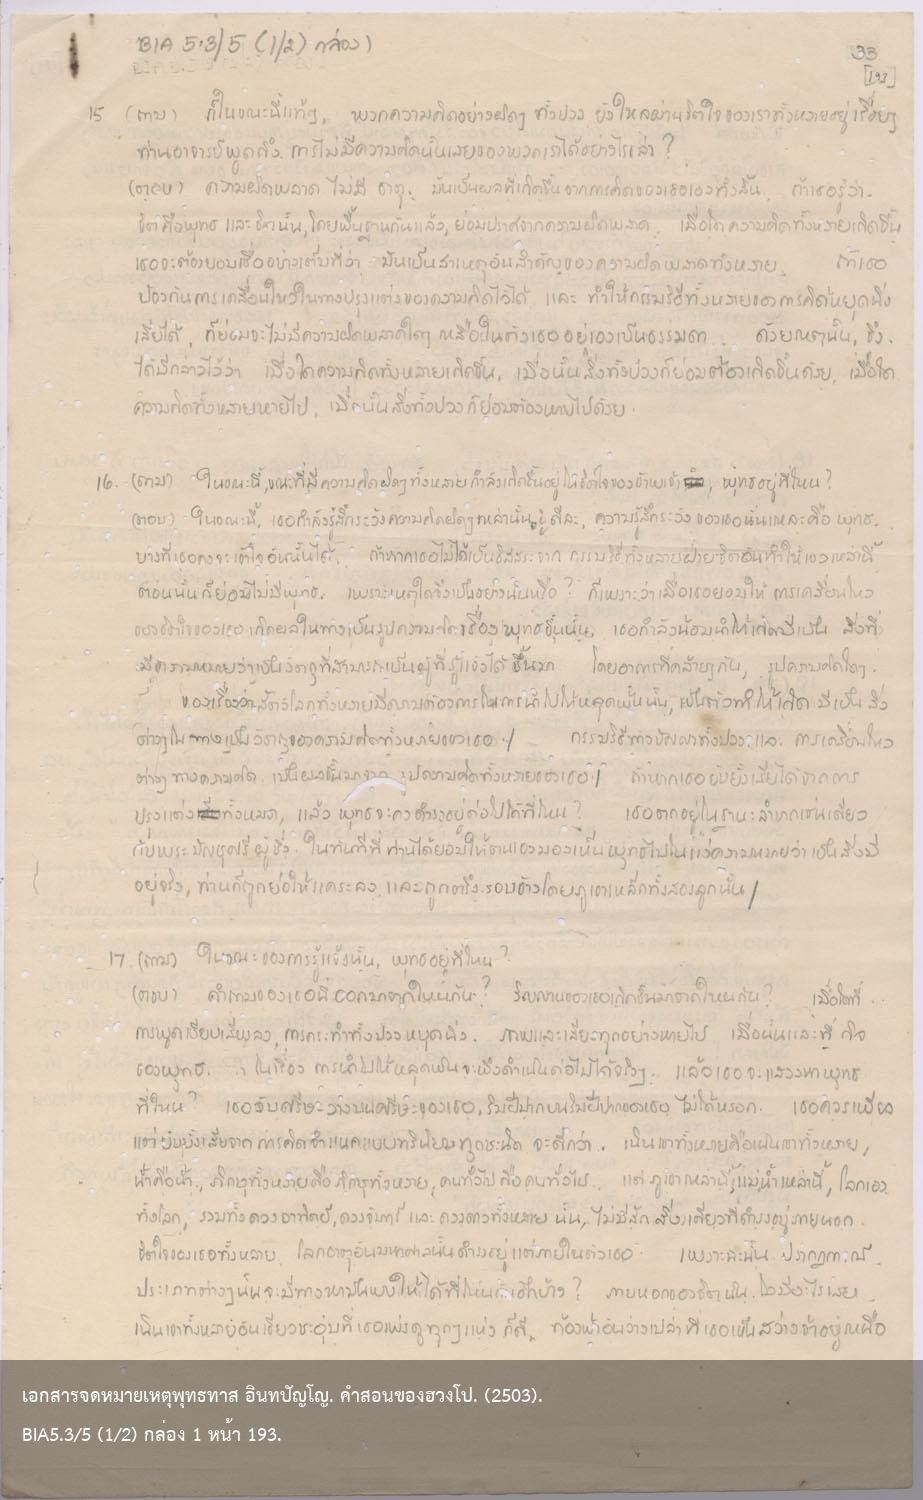 BIA 5.3/5 (1/2) กล่อง 1
33
[193]
15 (ถาม) ก็ในขณะนี้แท้ๆ, พวกความคิดอย่างผิดๆ ทั้งปวง ยังไหลผ่านจิตใจของเราทั้งหลายอยู่เรื่อยๆ
ท่านอาจารย์พูดถึง การไม่มีความคิดนั้นเสียของพวกเราได้อย่างไรเล่า?
(ตอบ) ความผิดพลาด ไม่มี ธาตุ. มันเป็นผลที่เกิดขึ้นจากการคิดของเธอเองทั้งสิ้น. ถ้าเธอรู้ว่า
จิตคือพุทธ และจิตนั้น, โดยพื้นฐานกันแล้ว, ย่อมปราศจากความผิดพลาด. เมื่อใดความคิดทั้งหลายเกิดขึ้น
เธอจะต้องยอมเชื่ออย่างเต็มที่ว่า มันเป็นสาเหตุอันสำคัญของความผิดพลาดทั้งหลาย. ถ้าเธอ
ป้องกันการเคลื่อนไหวในทางปรุงแต่งของความคิดไว้ได้ และ ทำให้กรรมวิธีทั้งหลายของการคิดหยุดนิ่ง
เสียได้, ก็ย่อมจะไม่มีความผิดพลาดใดๆ เหลือในตัวเธออยู่เองเป็นธรรมดา. ด้วยเหตุนั้น, จึง
ได้มีกล่าวไว้ว่า เมื่อใดความคิดทั้งหลายเกิดขึ้น, เมื่อนั้นสิ่งทั้งปวงก็ย่อมต้องเกิดขึ้นด้วย, เมื่อใด
ความคิดทั้งหลายหายไป, เมื่อนั้นสิ่งทั้งปวงก็ย่อมต้องหายไปด้วย.
16. (ถาม) ในขณะนี้, ขณะที่มีความคิดผิดๆทั้งหลายกำลังเกิดขึ้นอยู่ในจิตใจของข้าพเจ้า, พุทธอยู่ที่ไหน?
(ตอบ) ในขณะนี้, เธอกำลังรู้สึกระวังความคิดผิดๆเหล่านั้นอยู่ดีละ, ความรู้สึกระวัง ของเธอนั่นแหละคือ พุทธ.
บางทีเธอคงจะเข้าใจอันนั้นได้. ถ้าหากเธอไม่ได้เป็นอิสระจาก กรรมวิธีทั้งหลายฝ่ายจิตอันทำให้เธอเหล่านี้
ตอนนั้นก็ย่อมไม่มีพุทธ. เพราะเหตุใดจึงเป็นอย่างนั้นหรือ? ก็เพราะว่าเมื่อเธอยอมให้ การเคลื่อนไหว
ของจิตใจของเธอ เกิดผลในทางเป็นรูปความคิดเรื่องพุทธขึ้นนั้น, เธอกำลังน้อมนำให้เกิดมีเป็น สิ่งที่
มีความหมายว่าเป็นวัตถุที่สามารถเป็นผู้ที่รู้แจ้งได้ ขึ้นมา โดยอาการที่คล้ายๆกัน, รูปความคิดใดๆ.
ของเรื่องว่าสัตว์โลกทั้งหลายมีความต้องการในการนำไปให้หลุดพ้นนั้น, เป็นตัวทำให้เกิด มีเป็น สิ่ง
ต่างๆใน ทางเป็น วัตถุของความคิดทั้งหลายของเธอ. / กรรมวิธีทางปัญญาทั้งปวง และ การเคลื่อนไหว
ต่างๆทางความคิด เป็นผลขึ้นมาจาก รูปความคิดทั้งหลายของเธอ / ถ้าหากเธอยับยั้งเสียได้จากการ
ปรุงแต่งทั้งหมด, แล้ว พุทธจะคงดำรงอยู่ต่อไปได้ที่ไหน? เธอตกอยู่ในฐานะลำบากเช่นเดียว
กับพระมัญชุศรี ผู้ซึ่ง ในทันทีที่ ท่านได้ยอมให้ตนเองมองเห็นพุทธไปในแง่ความหมายว่า เป็นสิ่งมี
อยู่จริง, ท่านก็ถูกย่อให้แคระลง และถูกตรึงรอบข้างโดยภูเขาเหล็กทั้งสองลูกนั้น /
17. (ถาม) ในขณะของการรู้แจ้งนั้น, พุทธอยู่ที่ไหน?
(ตอบ) คำถามของเธอนี้ ออกมาจากไหนกัน? วิญญาณของเธอเกิดขึ้นมาจากไหนกัน? เมื่อใดที่
การพูดเงียบเสียงลง, การกระทำทั้งปวงหยุดนิ่ง. ภาพและเสียงทุกอย่างหายไป เมื่อนั้นแหละที่ กิจ
ของพุทธ. ในเรื่อง การนำไปให้หลุดพ้น จะพึงดำเนินต่อไปได้จริงๆ. แล้วเธอจะแสวงหาพุทธ
ที่ไหน? เธอจับศรีษะวางบนศรีษะของเธอ, ริมฝีปากบนริมฝีปากของเธอ ไม่ได้หรอก. เธอควรเพียง
แต่ยับยั้งเสียจากการคิดจำแนกแบบทวินิยมทุกชะนิด จะดีกว่า. เนินเขาทั้งหลายคือเนินเขาทั้งหลาย,
น้ำคือน้ำ, ภิกษุทั้งหลายคือภิกษุทั้งหลาย, คนทั่วไปคือคนทั่วไป. แต่ ภูเขาเหล่านี้, แม่น้ำเหล่านี้, โลกเอง
ทั้งโลก, รวมทั้งดวงอาทิตย์, ดวงจันทร์ และ ดวงดาวทั้งหลาย นั้น, ไม่มีสัก สิ่งเดียวที่ดำรงอยู่ภายนอก
จิตใจของเธอทั้งหลาย โลกธาตุอันมหาศาลนั้นดำรงอยู่แต่ภายในตัวเธอ. เพราะฉะนั้น ปรากฏการณ์
ประเภทต่างๆนั้นจะมีทางหามันพบให้ได้ที่ไหนกันอีกบ้าง? ภายนอกของจิตนั้น. ไม่มีอะไรเลย.
เนินเขาทั้งหลายอันเขียวชะอุ่มที่เธอเพ่งดูทุกๆแห่ง ก็ดี, ท้องฟ้าอันว่างเปล่าที่เธอเห็นสว่างจ้าอยู่เหนือ
เอกสารจดหมายเหตุพุทธทาส อินทปัญโญ. คำสอนของฮวงโป. (2503).
BIA5.3/5 (1/2) กล่อง 1 หน้า 193.